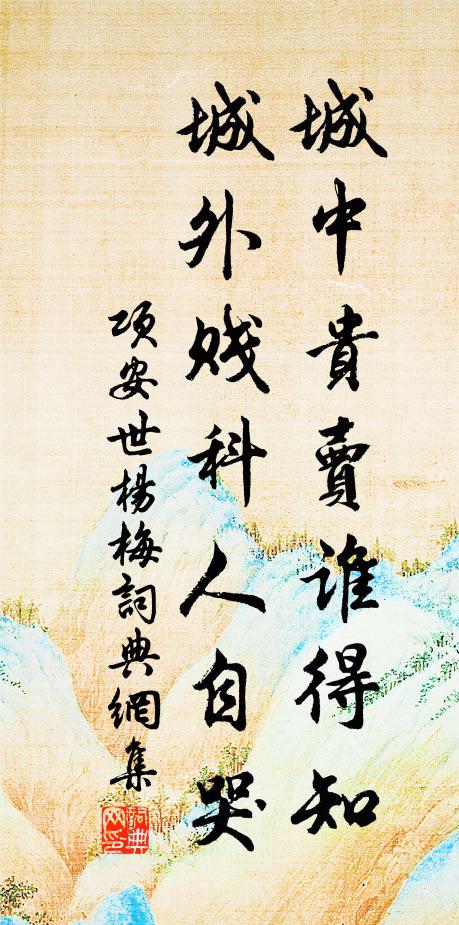 城中貴賣誰得知
城外賤科人自哭
項安世楊梅詞典網集
詞典網印